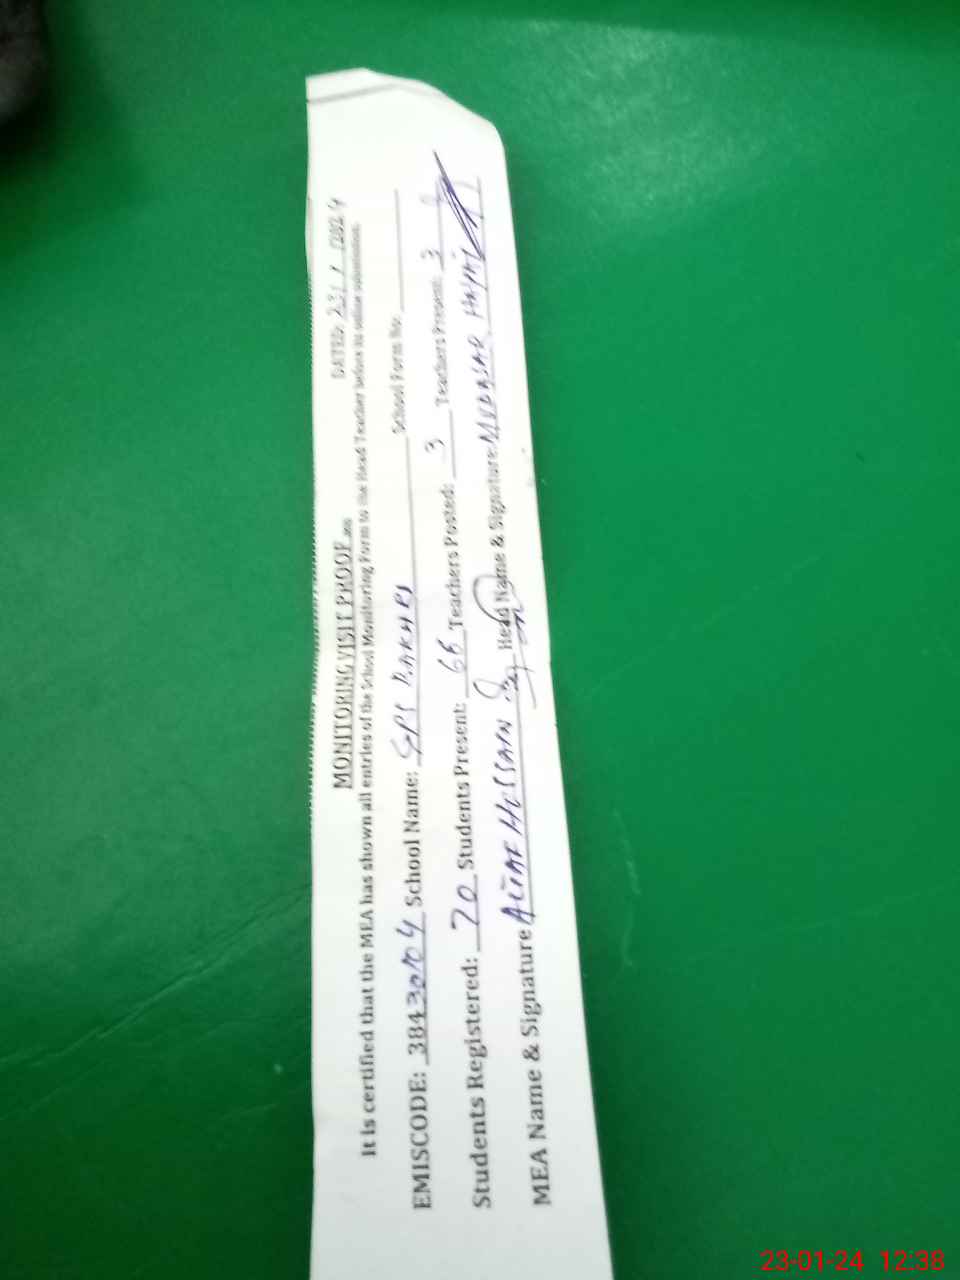 MONITORING VISIT PROOF DATED: 23/1/2024
It is certified that the MEA has shown all entries of the School Monitoring Form to the Head Teacher before its online submission.
EMISCODE: 38430104 School Name: GPS School Form No.
Students Registered: 70 Students Present: 66 Teachers Posted: 3 Teachers Present: 3
MEA Name & Signature ALTAF HUSSAIN Head Name & Signature MUDASAR HAYAT
23-01-24 12:38